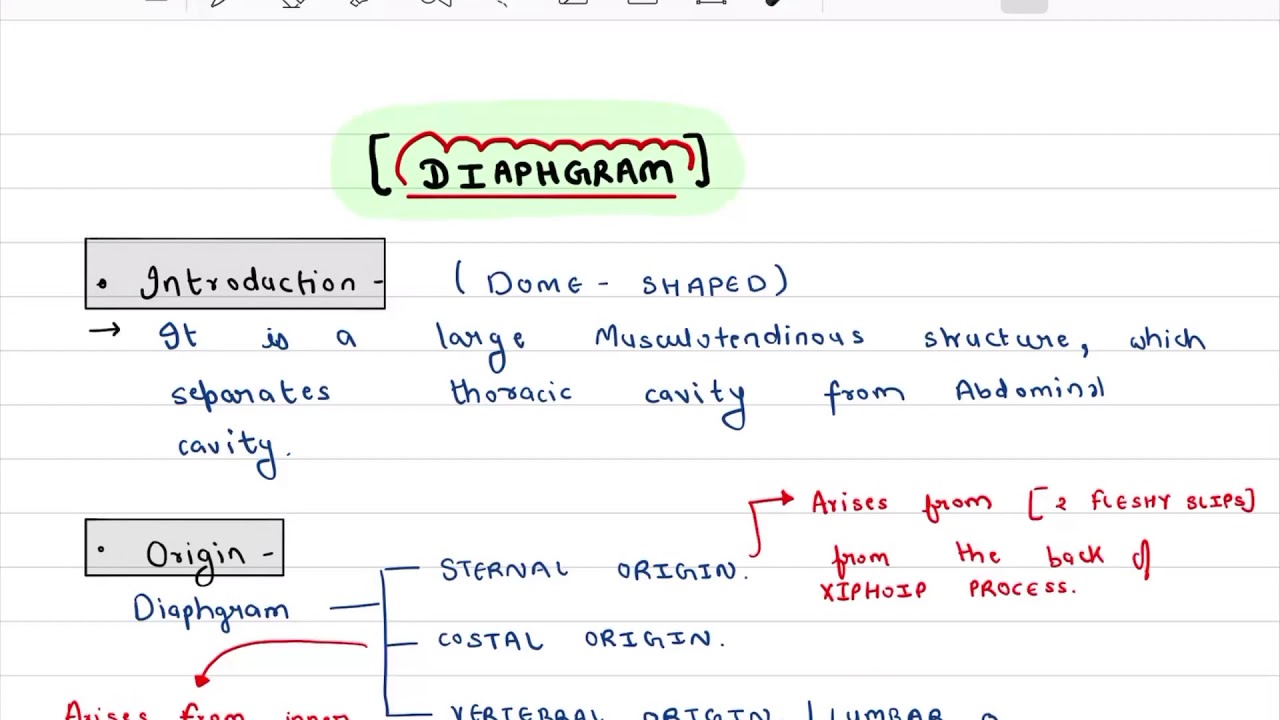 [ DIAPHGRAM ]
• Introduction - ( DOME - SHAPED )
→ It is a large Musculotendinous structure, which
separates thoracic cavity from Abdominal
cavity.
Arises from [ 2 FLESHY SLIPS]
• Origin -
from the back of
STERNAL ORIGIN.
XIPHOIP PROCESS.
Diaphgram
COSTAL ORIGIN.
Arises from inner
VERTEBRAL ORIGIN / LUMBAR